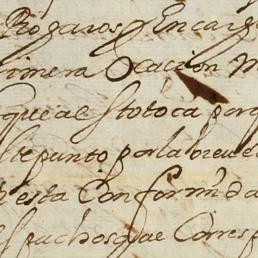 Rogaros y Encarg
rimera Ocacion m
que ae Stotoca por
este punto por la breue
esta Conformida
spachos que Corresp